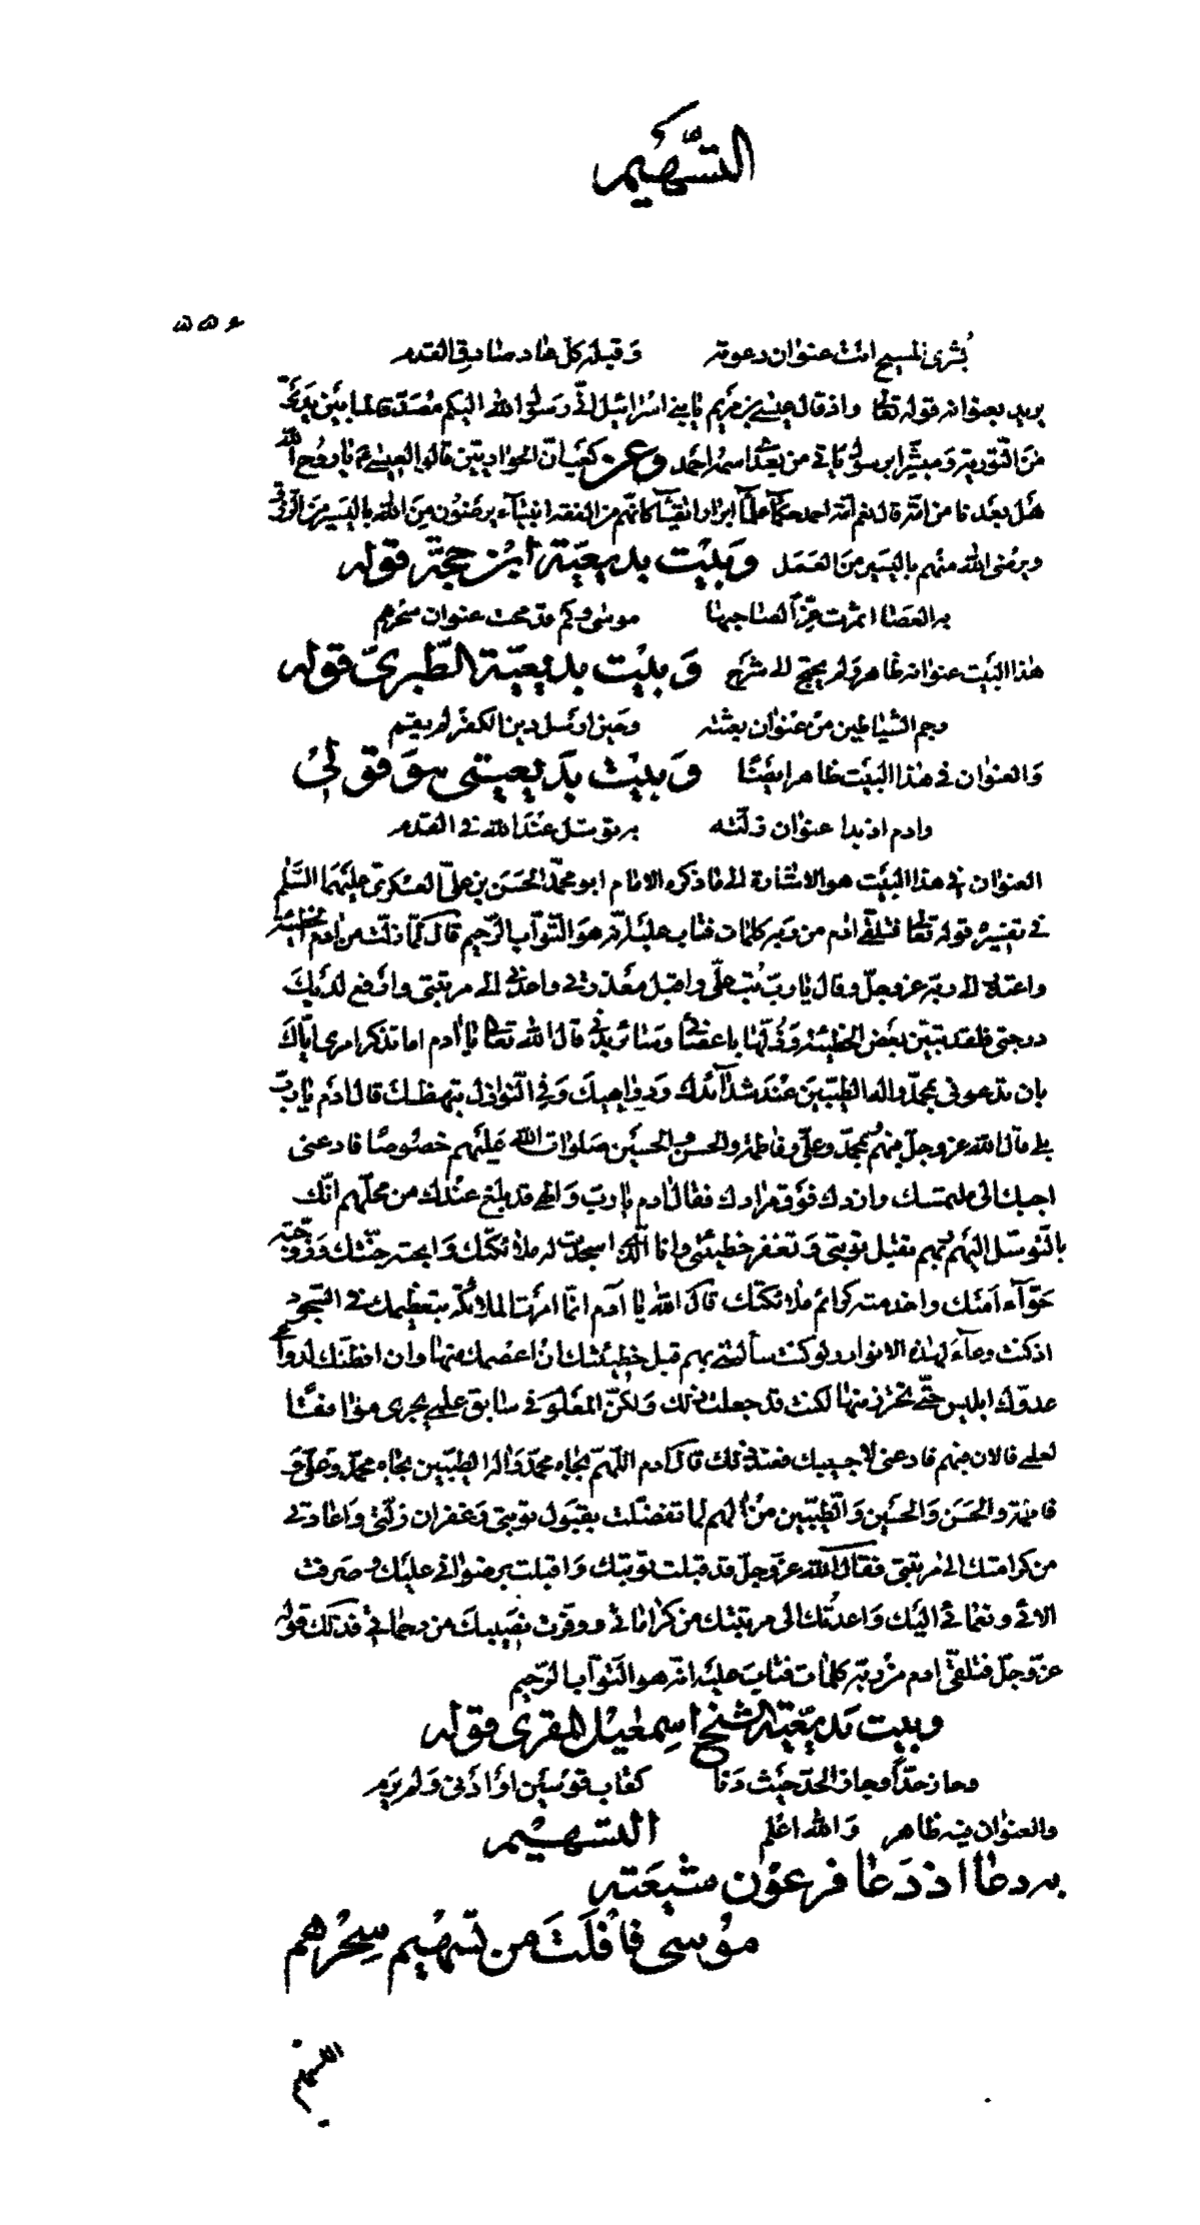 التسهيم
بشرى المسيح اتت عنوان دعوته وقبله كل هاد صادق القدم
يريد بعنوانه قوله تعالى واذ قال عيسى بن مريم يا بني اسرائيل اني رسول الله اليكم مصدقا لما بين يدي
من التورية ومبشرا برسول ياتي من بعدي اسمه احمد وعن كعب ان الحواريين قالوا لعيسى ع يا روح الله
هل بعدنا من امة قال نعم امة احمد حكماء علماء ابرار اتقياء كانهم من الفقه انبياء يرضون من الله باليسير من الرزق
ويرضى الله منهم باليسير من العمل وبيت بديعية ابن حجة قوله
به العصا اثمرت عزا لصاحبها موسى وكم قد محت عنوان سحرهم
هذا البيت عنوانه ظاهر ولم يحتج الى شرح وبيت بديعية الطبري قوله
رجم الشياطين من عنوان بعثته وحين ارسل دين الكفر لم يقم
والعنوان في هذا البيت ظاهر ايضا وبيت بديعيتي هو قولي
وادم اذ بدا عنوان زلته به توسل عند الله في القدم
العنوان في هذا البيت هو الاشارة الى ما ذكره الامام ابو محمد الحسن بن علي العسكري عليهما السلم
في تفسير قوله تعالى فتلقى ادم من ربه كلمات فتاب عليه انه هو التواب الرحيم قال لما زلت من ادم الخطيئة
واعتذر الى ربه عز وجل وقال يا رب تب علي واقبل معذرتي واعدني الى مرتبتي وارفع لديك
درجتي فلقد تبين بعض الخطيئة وذلها باعضائي وسائر بدني قال الله تعالى يا ادم اما تذكر امري اياك
بان تدعوني بمحمد واله الطيبين عند شدائدك ودواهيك وفي النوازل تبهظك قال ادم يا رب
بلى قال الله عز وجل فبهم بمحمد وعلي وفاطمة والحسن والحسين صلوات الله عليهم خصوصا فادعني
اجبك الى ملتمسك وازدك فوق مرادك فقال ادم يا رب والهي قد بلغ عندك من محلهم انك
بالتوسل اليهم بهم تقبل توبتي وتغفر خطيئتي وانا الذي اسجدت له ملائكتك وابحته جنتك وزوجته
حواء امتك واخدمته كرائم ملائكتك قال الله يا ادم انما امرت الملائكة بتعظيمك في السجود
اذ كنت وعاء لهذه الانوار ولو كنت سألتني بهم قبل خطيئتك ان اعصمك منها وان افطنك لدواعي
عدوك ابليس حتى تحترز منها لكنت قد جعلت ذلك ولكن المعلوم في سابق علمي يجري موافقا
لعلمي فالان فبهم فادعني لاجيبك فعند ذلك قال ادم اللهم بجاه محمد واله الطيبين بجاه محمد وعلي و
فاطمة والحسن والحسين والطيبين من الهم لما تفضلت بقبول توبتي وغفران زلتي واعادتي
من كرامتك الى مرتبتي فقال الله عز وجل قد قبلت توبتك واقبلت برضواني عليك وصرفت
الائي ونعمائي اليك واعدتك الى مرتبتك من كراماتي ووفرت نصيبك من رحماتي فذلك قوله
عز وجل فتلقى ادم من ربه كلمات فتاب عليه انه هو التواب الرحيم
وبيت بديعية الشيخ اسمعيل المقري قوله
وحاز حدا وجاز الحد حيث دنا كقاب قوسين او ادنى ولم يرم
والعنوان فيه ظاهر والله اعلم التسهيم
به دعا اذ دعا فرعون شيعته
موسى فافلت من تسهيم سحرهم
التسهيم